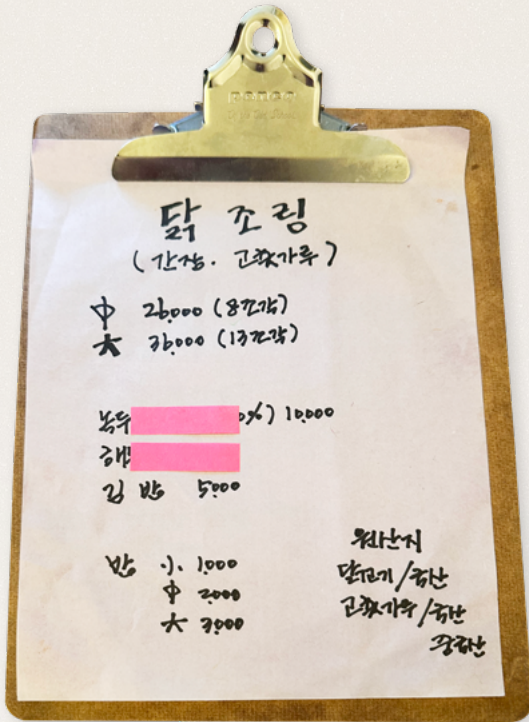 penco
닭 조림
(간장. 고춧가루)
中 26,000 (8조각)
大 36,000 (13조각)
녹두 0%) 10,000
해
김 밥 5,000
밥 小 1,000
中 2,000
大 3,000
원산지
닭고기/국산
고춧가루/국산
중국산